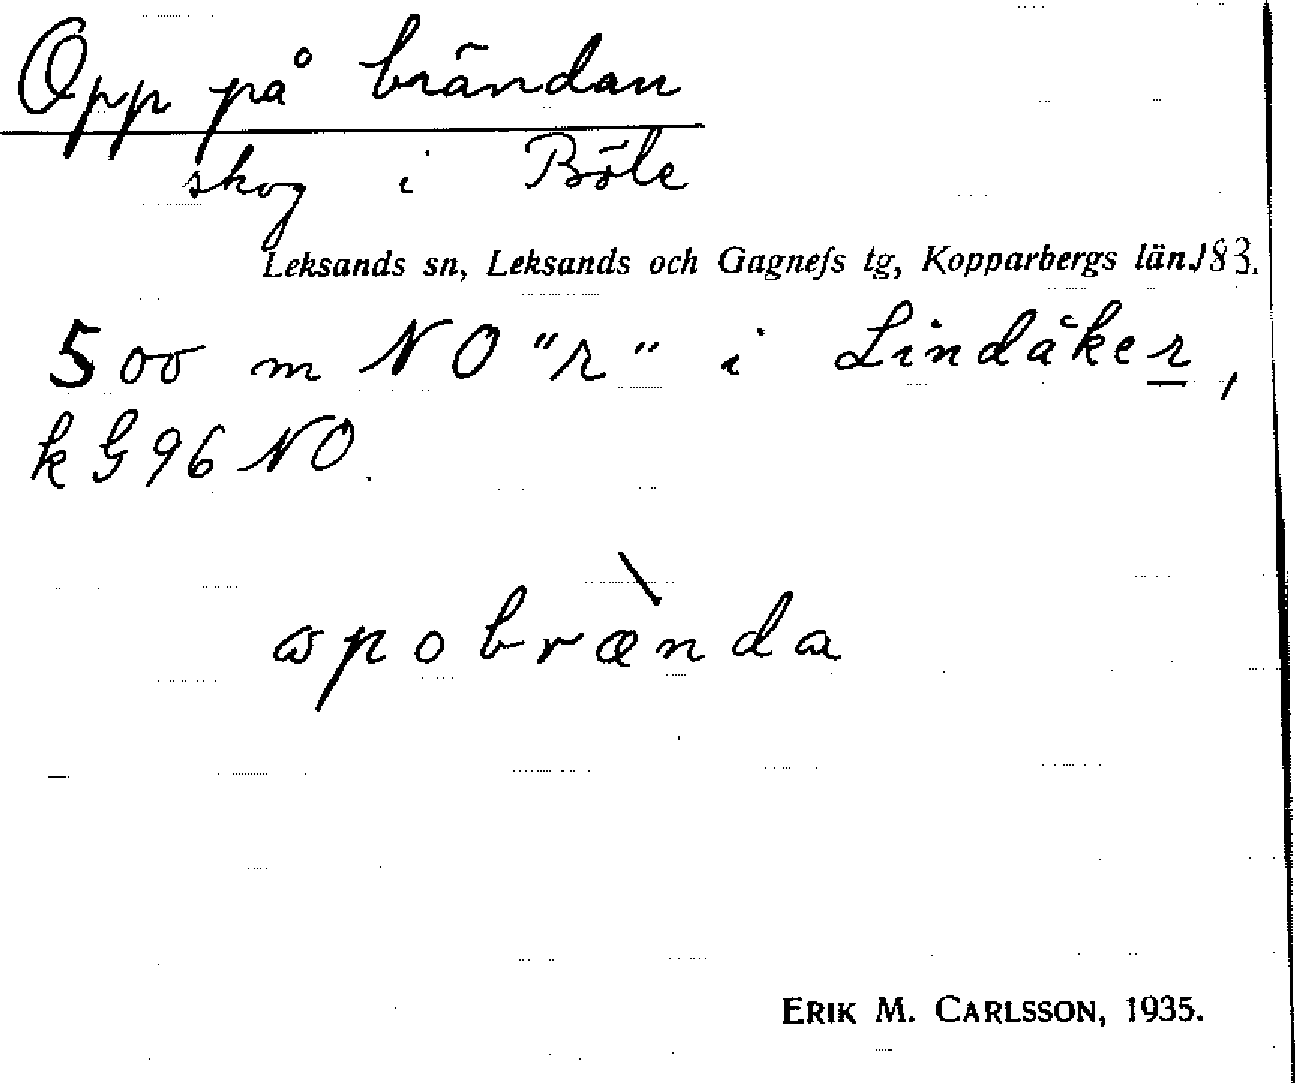 Opp på brändan
skog i Böle
Leksands sn, Leksands och Gagnefs tg, Kopparbergs län. 183.
500 m NO "r" i Lindåker,
k G 96 NO.
ɷpobrænda
ERIK M. CARLSSON, 1935.